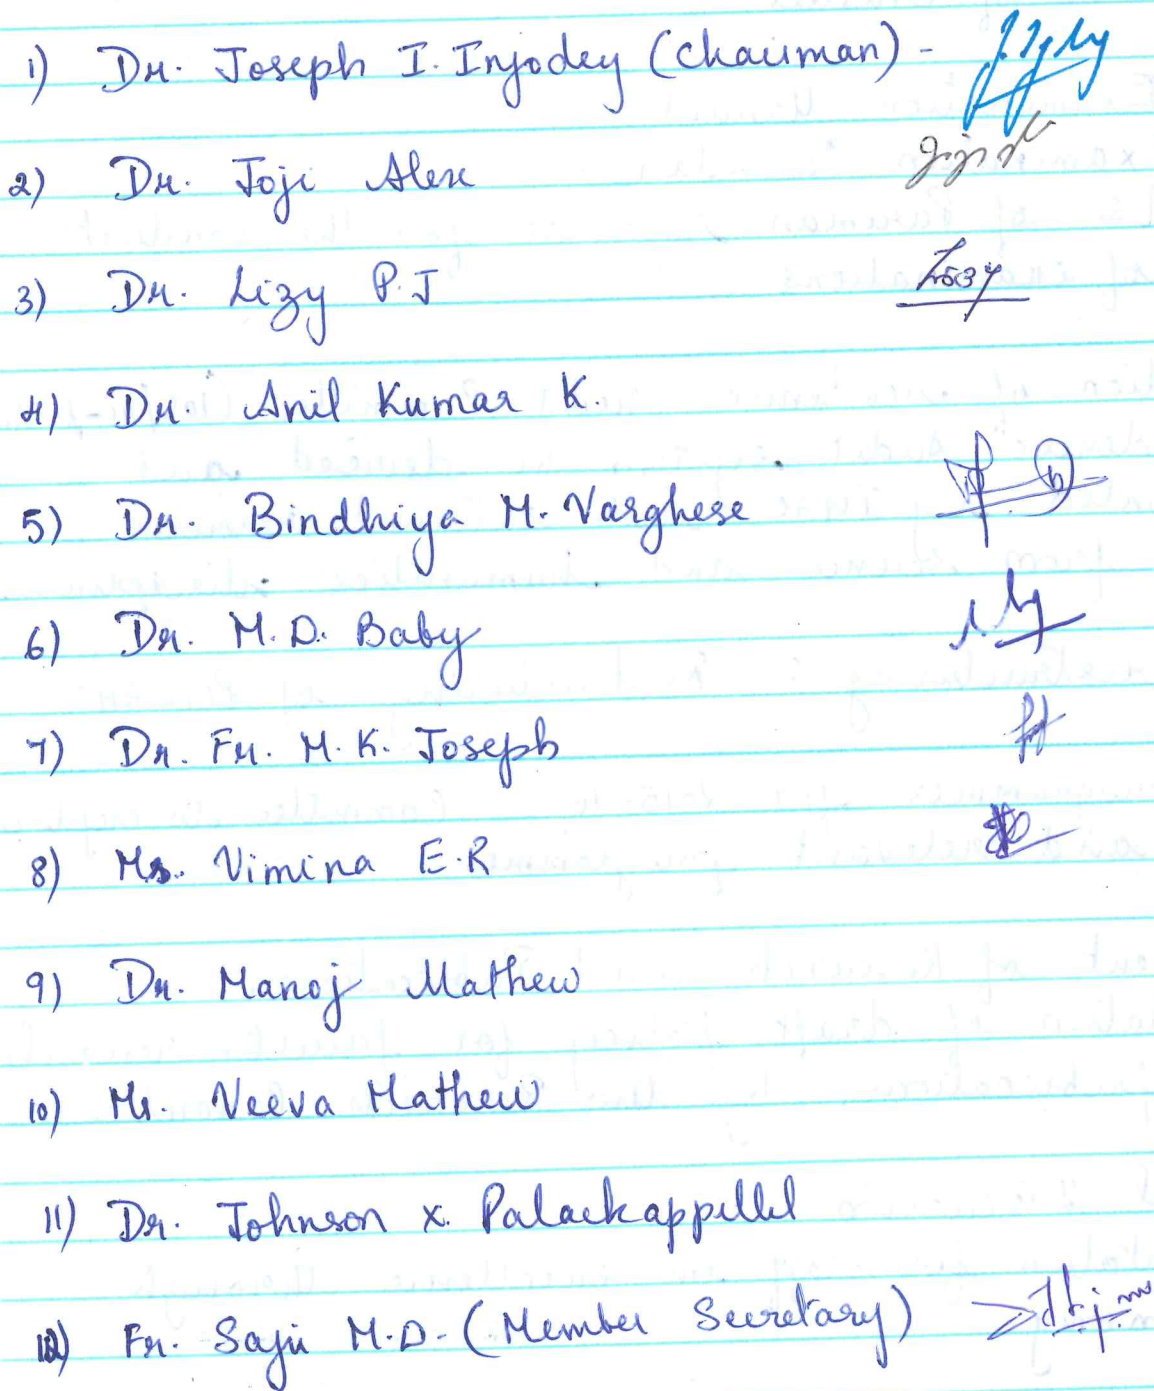 1) Dr. Joseph I. Injodey (Chairman) -
2) Dr. Joji Alex
3) Dr. Lizy P.J Lizy
4) Dr. Anil Kumar K.
5) Dr. Bindhiya M. Varghese
6) Dr. M.D. Baby
7) Dr. Fr. M.K. Joseph
8) Ms. Vimina E.R
9) Dr. Manoj Mathew
10) Mr. Veeva Mathew
11) Dr. Johnson X. Palackappillil
12) Fr. Saju M.D. (Member Secretary)